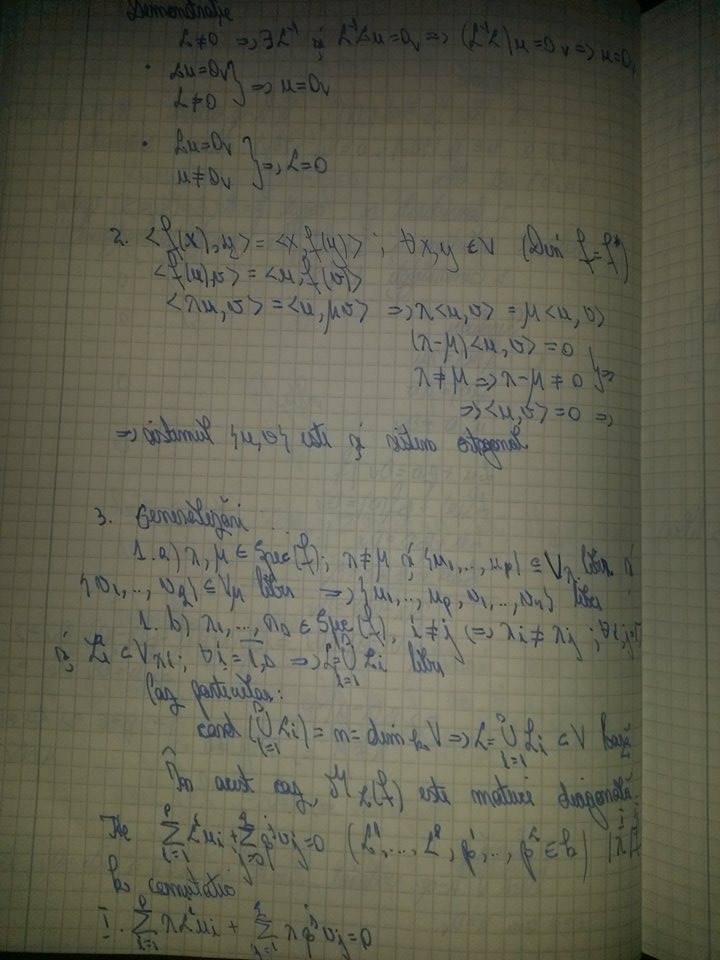 Demonstratie
α≠0 => ∃α⁻¹ și α⁻¹αu=0ᵥ => (α⁻¹α)u=0ᵥ => u=0ᵥ
• αu=0ᵥ
α≠0 } => u=0ᵥ
• αu=0ᵥ
u≠0ᵥ } => α=0
2. <f(x),y> = <x,f(y)> ; ∀x,y ∈V (Din f=f*)
<f(u),v> = <u,f(v)>
<λu,v> = <u,μv> => λ<u,v> = μ<u,v>
(λ-μ)<u,v> = 0
λ≠μ => λ-μ≠0 } =>
=> <u,v> = 0 =>
=> sistemul {u,v} este și sistem ortogonal
3. Generalizări
1.a) λ,μ ∈ Spec(f); λ≠μ și {u₁,...,uₚ} ⊆ V_λ liber și
{v₁,...,v_q} ⊆ V_μ liber => {u₁,...,uₚ,v₁,...,v_q} liber
1.b) λ₁,...,λₛ ∈ Spec(f), i≠j => λi≠λj ; ∀i,j=1
și Li ⊂ V_λi ; ∀i=1,s => L=⋃ᵢ₌₁ˢ Li liber
Caz particular:
card(⋃ᵢ₌₁ˢ Li) = n = dim_k V => L=⋃ᵢ₌₁ˢ Li ⊂ V bază
În acest caz, M_L(f) este matrice diagonală.
Fie ∑ᵢ₌₁ᵖ αⁱui + ∑ⱼ₌₀^q βʲvj=0 (α¹,...,αᵖ, β¹,..., β^q ∈k) |λ|
k comutativ
I. ∑ᵢ₌₁ᵖ λαⁱui + ∑ⱼ₌₁^q λβʲvj=0